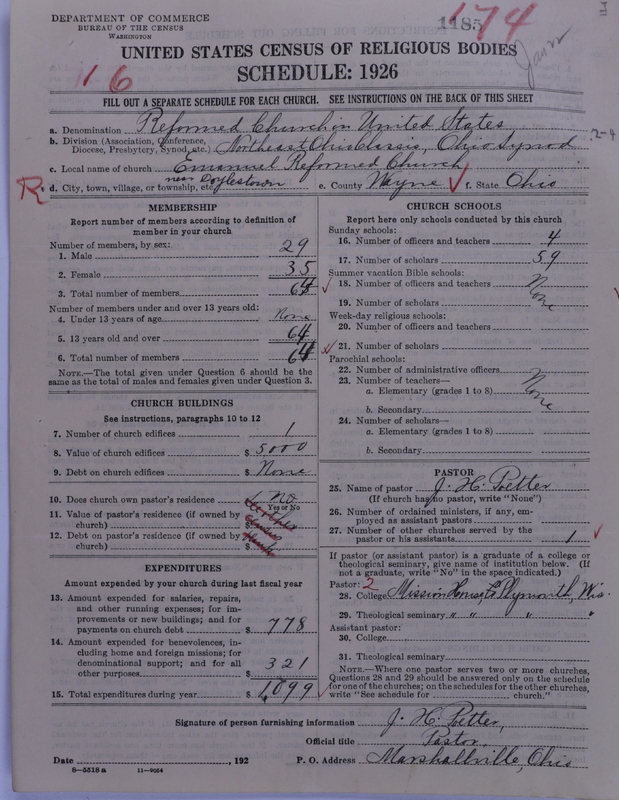 DEPARTMENT OF COMMERCE
BUREAU OF THE CENSUS
WASHINGTON
1185
174
16
UNITED STATES CENSUS OF RELIGIOUS BODIES
SCHEDULE: 1926
FILL OUT A SEPARATE SCHEDULE FOR EACH CHURCH. SEE INSTRUCTIONS ON THE BACK OF THIS SHEET
a. Denomination Reformed Church in United States
b. Division (Association, Conference, Diocese, Presbytery, Synod, etc.) Northeast Ohio Classis, Ohio Synod
2-4
c. Local name of church Emanuel Reformed Church
R d. City, town, village, or township, etc. near Doylestown e. County Wayne f. State Ohio
MEMBERSHIP
Report number of members according to definition of member in your church
Number of members, by sex:
1. Male 29
2. Female 35
3. Total number of members 64
Number of members under and over 13 years old:
4. Under 13 years of age None
5. 13 years old and over 64
6. Total number of members 64
NOTE.—The total given under Question 6 should be same as the total of males and females given under Question 3.
CHURCH BUILDINGS
See instructions, paragraphs 10 to 12
7. Number of church edifices 1
8. Value of church edifices $ 5000
9. Debt on church edifices $ None
10. Does church own pastor's residence No
Yes or No
11. Value of pastor's residence (if owned by church) $
12. Debt on pastor's residence (if owned by church) $
EXPENDITURES
Amount expended by your church during last fiscal year
13. Amount expended for salaries, repairs, and other running expenses; for improvements or new buildings; and for payments on church debt $ 778
14. Amount expended for benevolences, including home and foreign missions; for denominational support; and for all other purposes $ 321
15. Total expenditures during year $ 1,099
CHURCH SCHOOLS
Report here only schools conducted by this church
Sunday schools:
16. Number of officers and teachers 4
17. Number of scholars 59
Summer vacation Bible schools:
18. Number of officers and teachers None
19. Number of scholars
Week-day religious schools:
20. Number of officers and teachers
21. Number of scholars
Parochial schools:
22. Number of administrative officers None
23. Number of teachers—
a. Elementary (grades 1 to 8)
b. Secondary
24. Number of scholars—
a. Elementary (grades 1 to 8)
b. Secondary
PASTOR
25. Name of pastor J. H. Petter
(If church has no pastor, write "None")
26. Number of ordained ministers, if any, employed as assistant pastors
27. Number of other churches served by the pastor or his assistants 1
If pastor (or assistant pastor) is a graduate of a college or theological seminary, give name of institution below. (If not a graduate, write "No" in the space indicated.)
Pastor: 2
28. College Mission House, Plymouth, Wis.
29. Theological seminary " " " "
Assistant pastor:
30. College
31. Theological seminary
NOTE.—Where one pastor serves two or more churches, Questions 28 and 29 should be answered only on the schedule for one of the churches; on the schedules for the other churches, write "See schedule for church."
Signature of person furnishing information J. H. Petter,
Official title Pastor,
Date , 192 P. O. Address Marshallville, Ohio
8—5518 a 11—9054